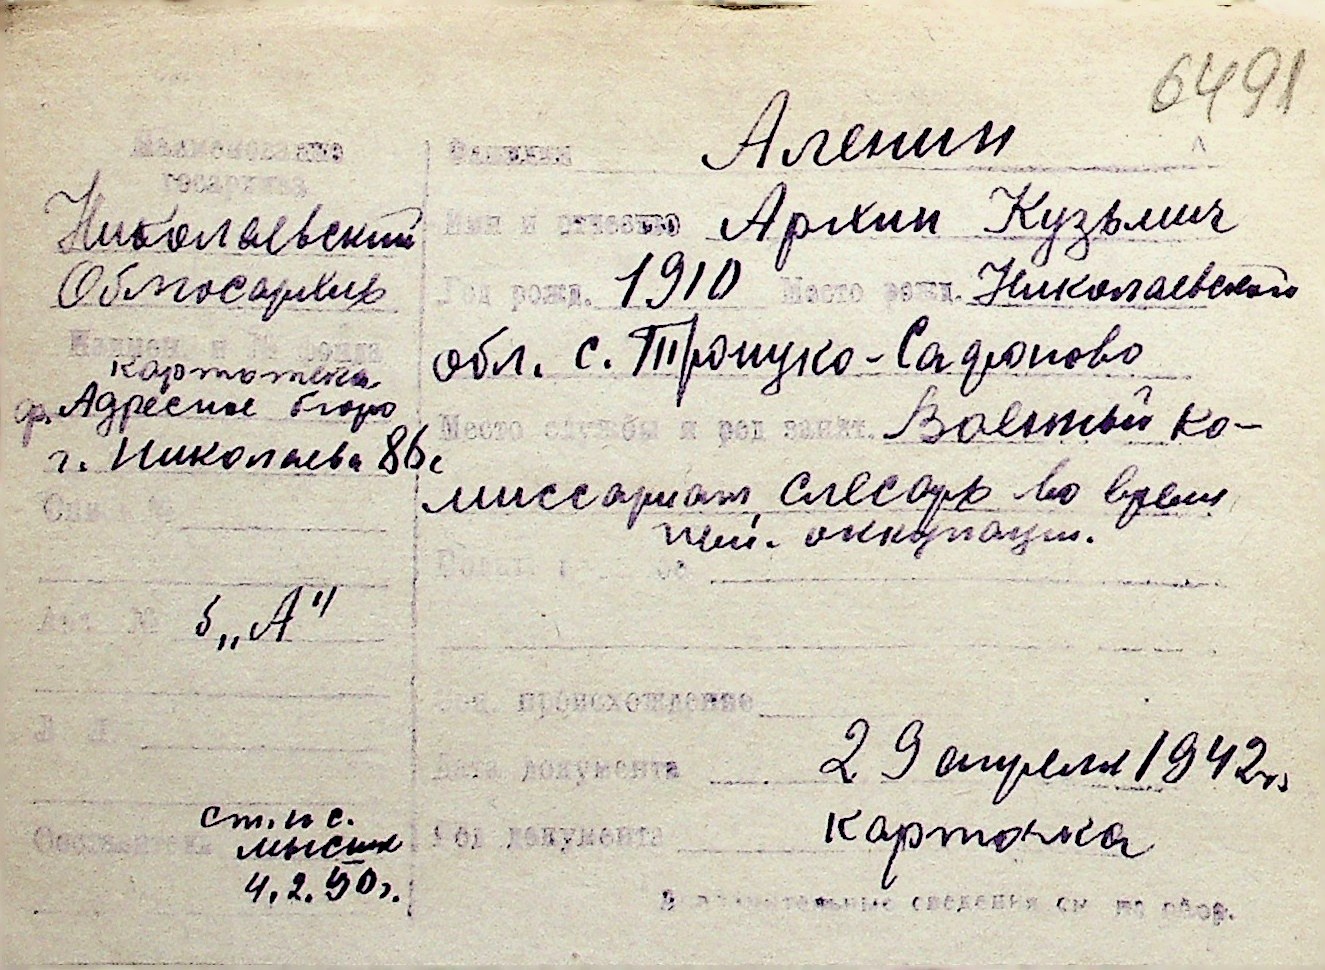 6491
Наименование
госархива
Николаевский
Облгосархив
Наимен. и № фонда
картотека
ф. Адресное бюро
г. Николаева 86с
Опись №
Арх. № 5 „А"
Л. Л.
Составитель ст. н. с.
4.2.50г.
Фамилия Аленин
Имя и отчество Архип Кузьмич
Год рожд. 1910 Место рожд. Николаевской
обл. с. Троицко-Сафоново
Место службы и род занят. Военный ко-
миссариат, слесарь во время
нем. оккупации.
Соц. происхождение
Дата документа 29 апреля 1942г.
Род документа карточка
Дополнительные сведения см. на обор.